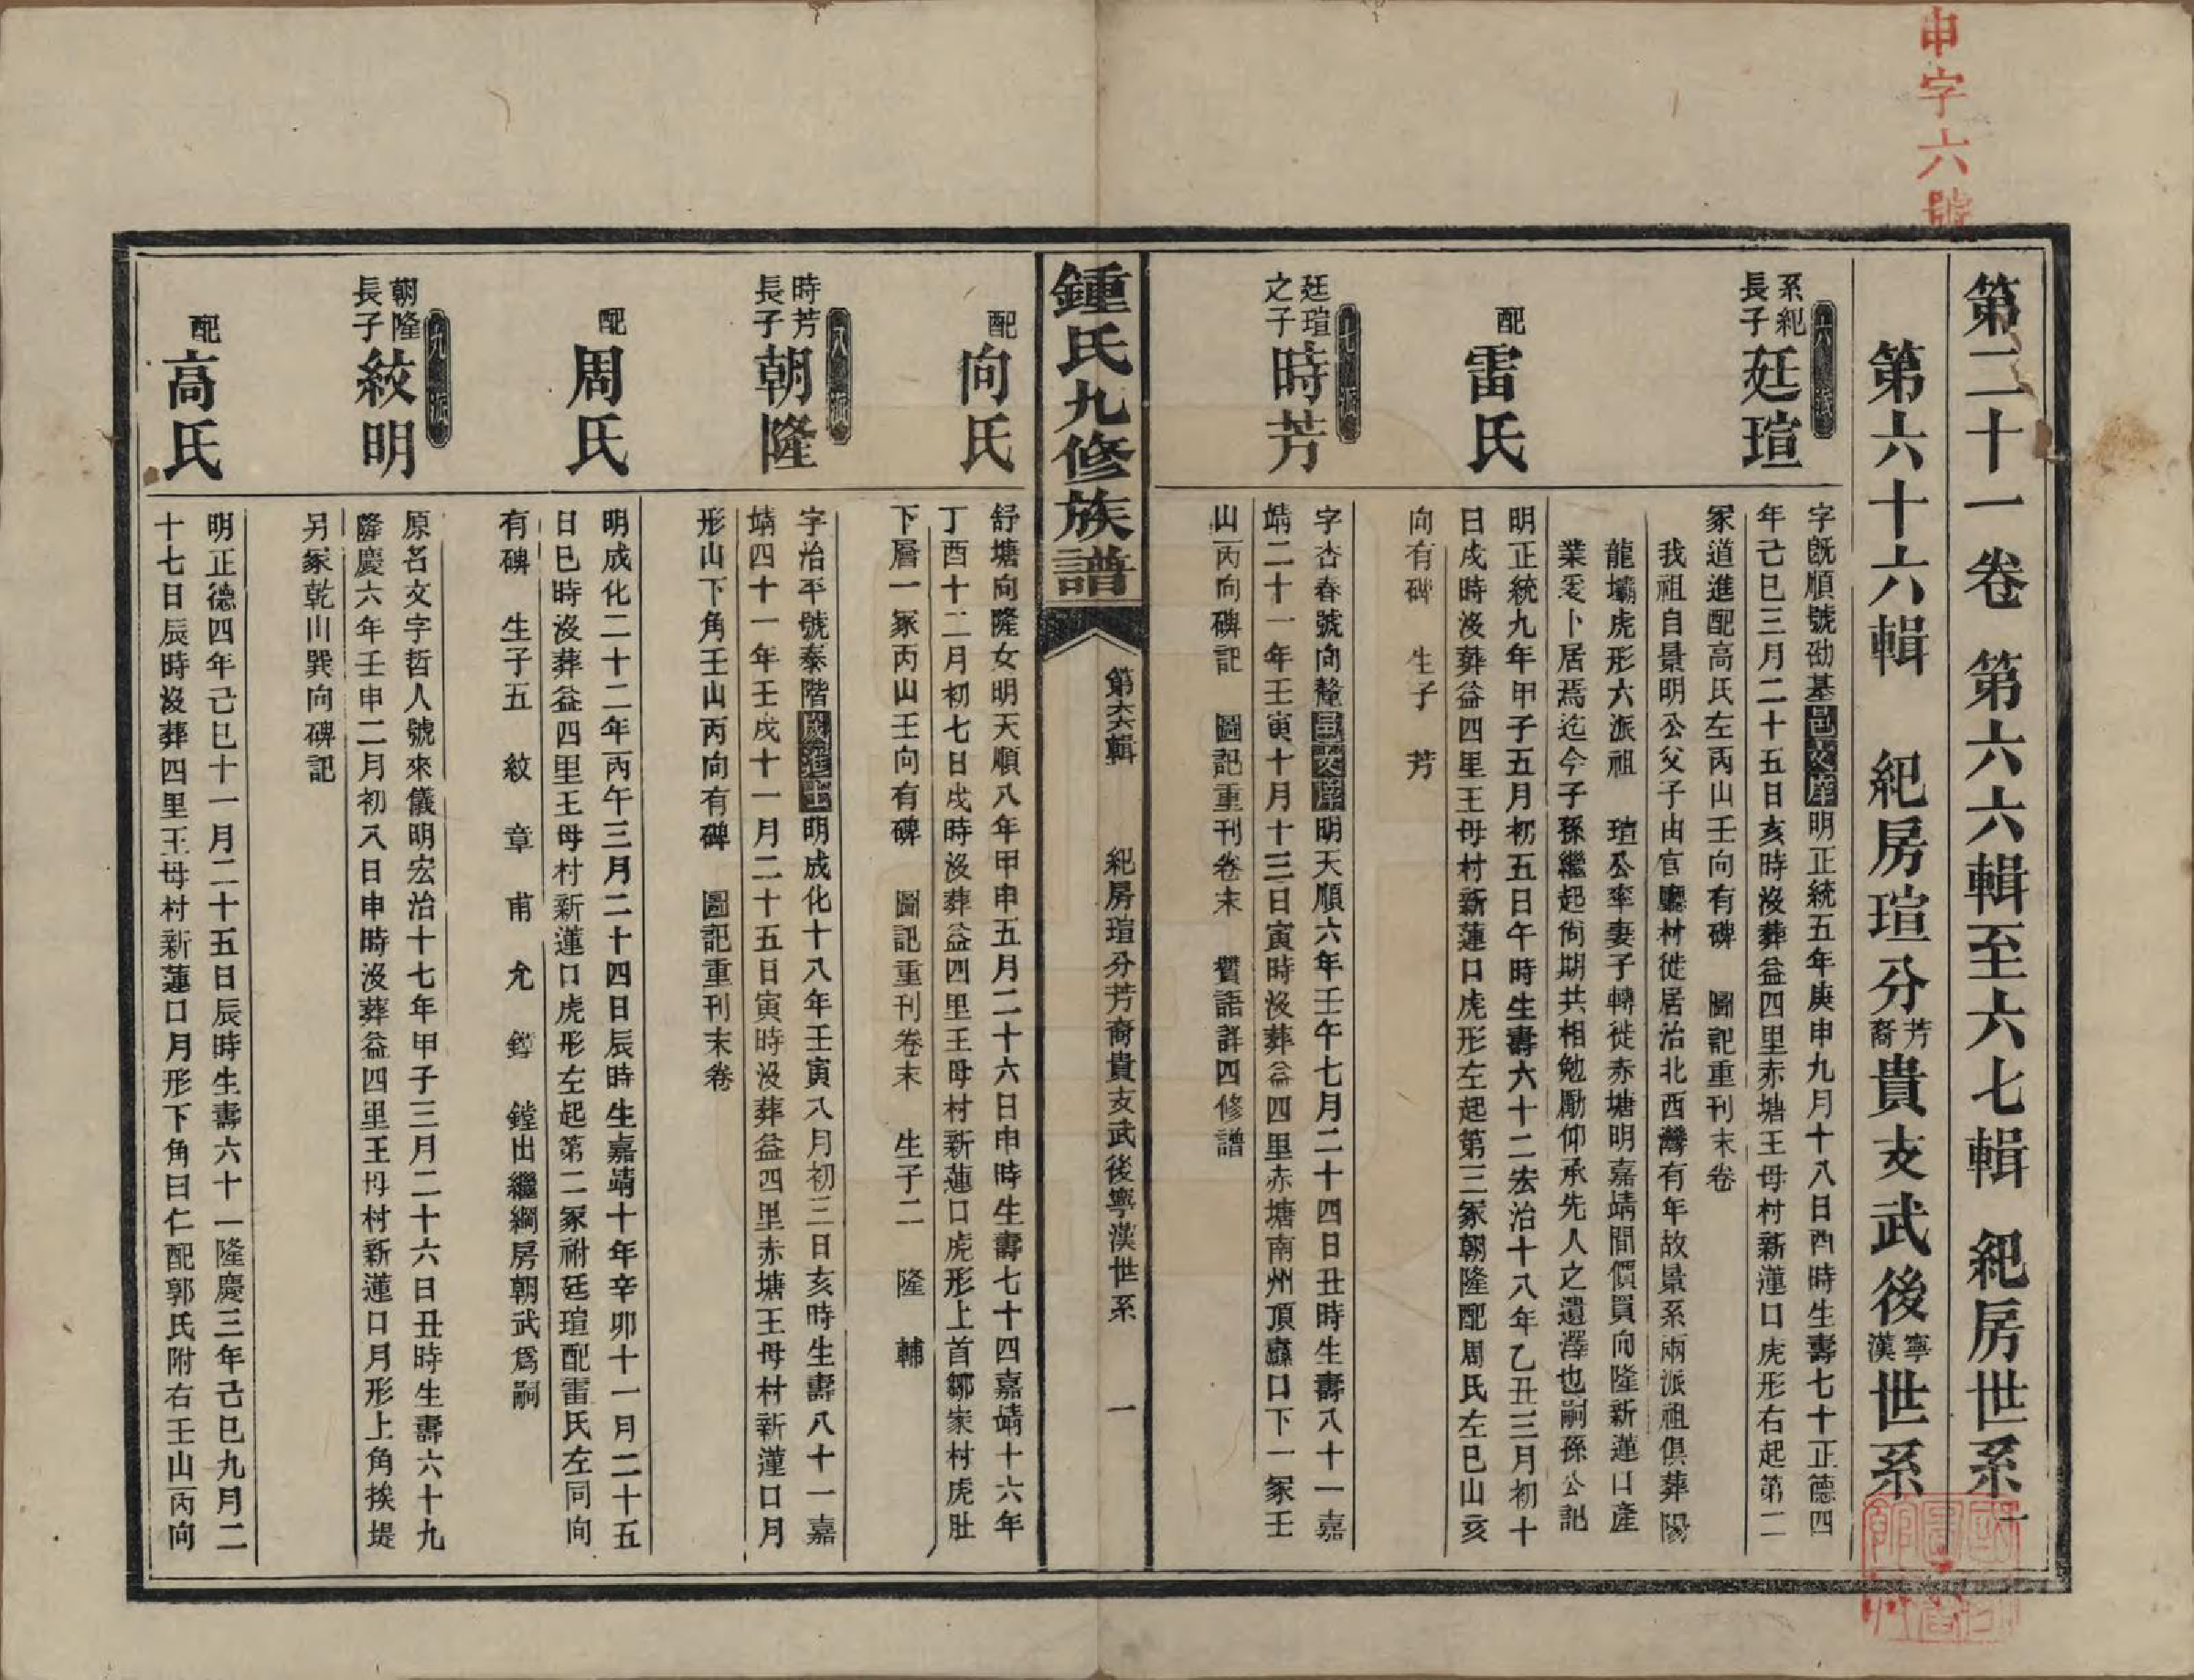 申字六號
第二十一卷 第六六輯至六七輯 紀房世系
第六十六輯 紀房瑄分芳裔貴支武後寧漢世系
六派
系紀長子 廷瑄
字既順號砌基邑文庠明正統五年庚申九月十八日酉時生壽七十正德四
年己巳三月二十五日亥時沒葬益四里赤塘王母村新蓮口虎形右起第二
冢道進配高氏左丙山壬向有碑 圖記重刊末卷
我祖自景明公父子由官廳村徙居治北西灣有年故景系兩派祖俱葬陽
龍壩虎形六派祖 瑄公率妻子轉徙赤塘明嘉靖間價買向隆新蓮口產
業爰卜居焉迄今子孫繼起尙期共相勉勵仰承先人之遺澤也嗣孫公記
配 雷氏
明正統九年甲子五月初五日午時生壽六十二宏治十八年乙丑三月初十
日戌時沒葬益四里王母村新蓮口虎形左起第三冢朝隆配周氏左巳山亥
向有碑 生子 芳
七派
廷瑄之子 時芳
字杏春號向犛邑文庠明天順六年壬午七月二十四日丑時生壽八十一嘉
靖二十一年壬寅十月十三日寅時沒葬益四里赤塘南州頂口下一冢壬
山丙向碑記 圖記重刊卷末 贊語詳四修譜
鍾氏九修族譜 第六六輯 紀房瑄分芳裔貴支武後寧漢世系 一
配 向氏
舒塘向隆女明天順八年甲申五月二十六日申時生壽七十四嘉靖十六年
丁酉十二月初七日戌時沒葬益四里王母村新蓮口虎形上首鄒家村虎肚
下層一冢丙山壬向有碑 圖記重刊卷末 生子二 隆 輔
八派
時芳長子 朝隆
字治平號泰階歲進士明成化十八年壬寅八月初三日亥時生壽八十一嘉
靖四十一年壬戌十一月二十五日寅時沒葬益四里赤塘王母村新蓮口月
形山下角壬山丙向有碑 圖記重刊末卷
配 周氏
明成化二十二年丙午三月二十四日辰時生嘉靖十年辛卯十一月二十五
日巳時沒葬益四里王母村新蓮口虎形左起第二冢祔廷瑄配雷氏左同向
有碑 生子五 紋 章 甫 允 鏜 鏜出繼綱房朝武爲嗣
九派
朝隆長子 紋明
原名文字哲人號來儀明宏治十七年甲子三月二十六日丑時生壽六十九
隆慶六年壬申二月初八日申時沒葬益四里王母村新蓮口月形上角挨堤
另冢乾山巽向碑記
配 高氏
明正德四年己巳十一月二十五日辰時生壽六十一隆慶三年己巳九月二
十七日辰時沒葬四里王母村新蓮口月形下角曰仁配郭氏附右壬山丙向